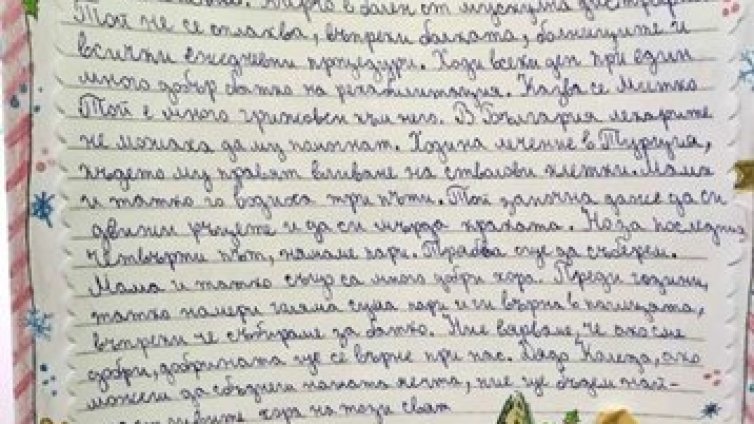 Марчо е болен от мускулна дистрофия.
Той не се оплаква, въпреки болката, болниците и
всички ежедневни процедури. Ходи всеки ден при един
много добър батко на рехабилитация. Казва се Митко
Той е много грижовен към него. В България лекарите
не можаха да му помогнат. Ходи на лечение в Турция,
където му правят вливане на стволови клетки. Мама
и татко го водиха три пъти. Той започна даже да си
движи ръцете и да си мърда краката. Но за последния,
четвърти път, нямаме пари. Трябва още да съберем.
Мама и татко също са много добри хора. Преди години,
татко намери голяма сума пари и ги върна в полицията,
въпреки че събираме за батко. Ние вярваме, че ако сме
добри, добрината ще се върне при нас. Дядо Коледа, ако
можеш да сбъднеш нашата мечта, ние ще бъдем най-
хора на този свят